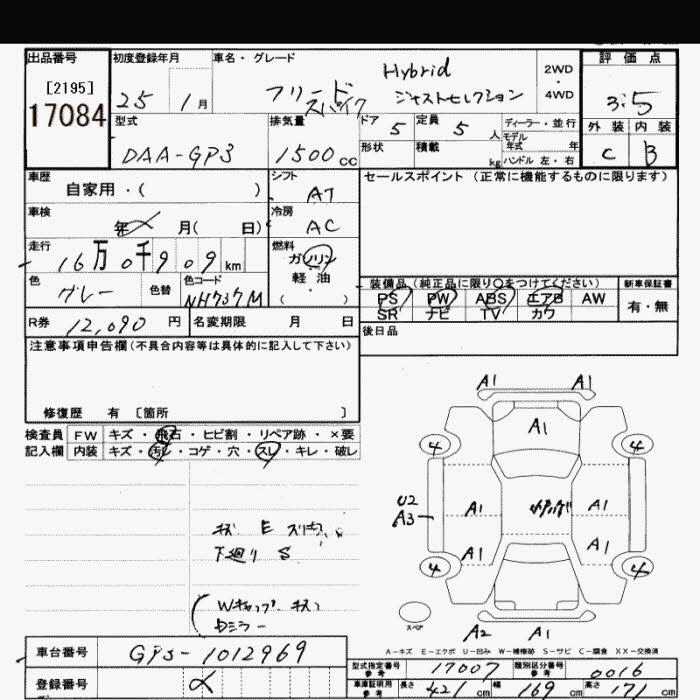 出品番号 初度登録年月 車名・グレード 評価点
[2195]
17084
25 1月
フリード スパイク Hybrid
ジャストセレクション
2WD ・ 4WD
3.5
外装 内装
C B
型式 排気量 ドア 定員 ディーラー・並行
DAA-GP3 1500CC 5 5人
モデル年式 年
形状 積載 kg ハンドル 左・右
車歴 シフト セールスポイント (正常に機能するものに限ります)
自家用・( ) AT
車検 冷房
年 月( 日) AC
走行 燃料
16万0千909km ガソリン
軽油
( )
色 色替 色コード
グレー NH737M
装備品(純正品に限り○をつけてください) 新車保証書
PS PW ABS エアB AW 有・無
SR ナビ TV カワ
R券 12,090円 名変期限 月 日 後日品
注意事項申告欄(不具合内容等は具体的に記入して下さい)
修復歴 有 〔箇所 〕
検査員 FW キズ・飛石・ヒビ割・リペア跡・×要
記入欄 内装 キズ・汚レ・コゲ・穴・スレ・キレ・破レ
A1 A1
A1
4 4
U2
A3
A1 A1
A1 A1
4 4
下廻り S
Wキャップ キズ
Dミラー
スペア
A2 A1
A-キズ E-エクボ U-凹み W-補修跡 S-サビ C-腐食 XX-交換済
車台番号 GP3-1012969
登録番号
型式指定番号 参考 17007 類別区分番号 参考 0016
車庫証明用 参考 長さ 421cm 幅 169cm 高さ 171cm